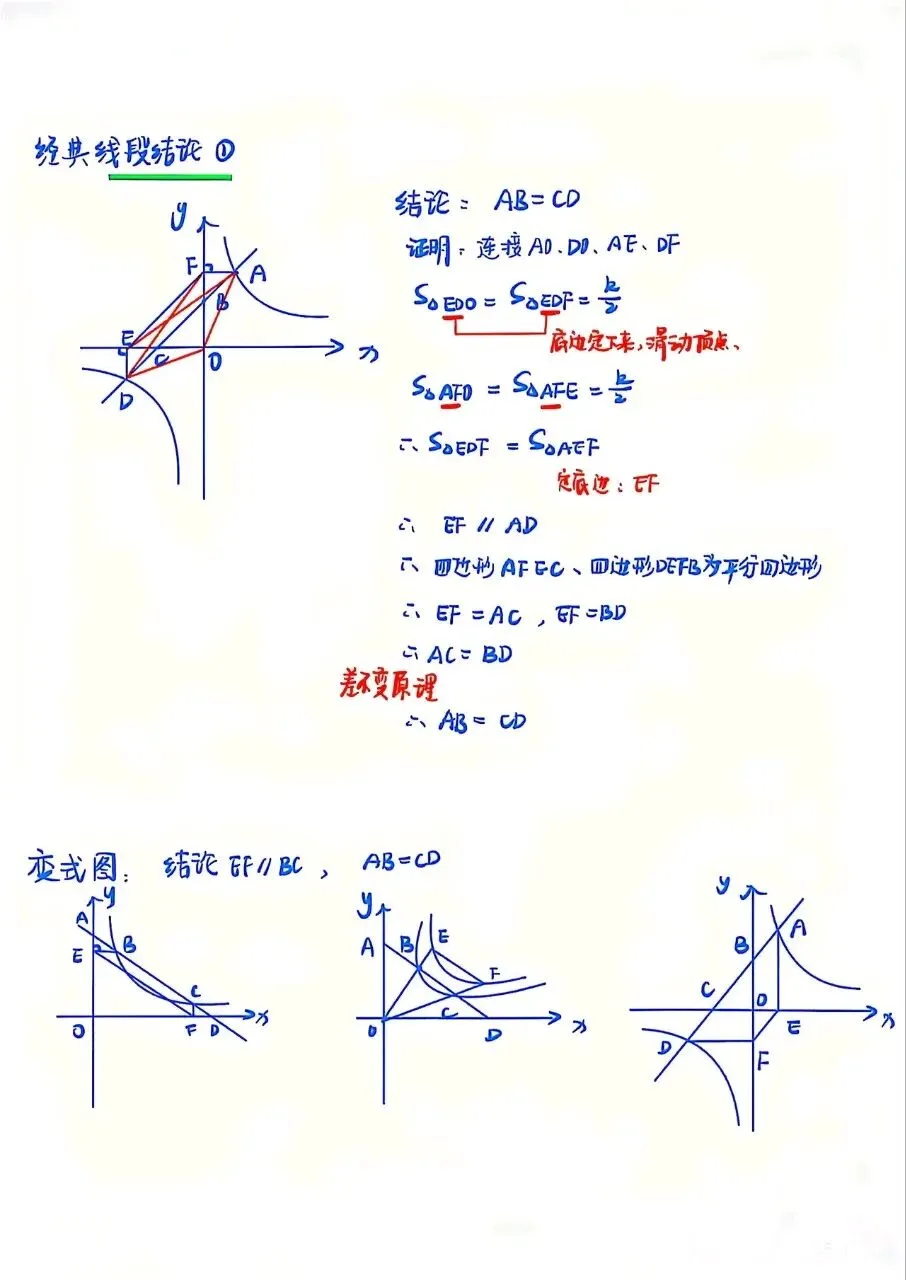 经典线段结论①
结论: AB=CD
证明: 连接AO、DO、AE、DF
S△EDO = S△EDF = k/2
底边定下来,滑动顶点、
S△AFO = S△AFE = k/2
∴ S△EDF = S△AEF
定底边: EF
∴ EF // AD
∴ 四边形AFEC、四边形DEFB为平行四边形
∴ EF = AC , EF=BD
∴ AC = BD
差不变原理
∴ AB = CD
y
F
A
B
E
C
O
x
D
变式图: 结论 EF//BC , AB=CD
A y
E B
C
O F D x
y
A B E
F
C
O D x
y
A
B
C O
E x
D
F